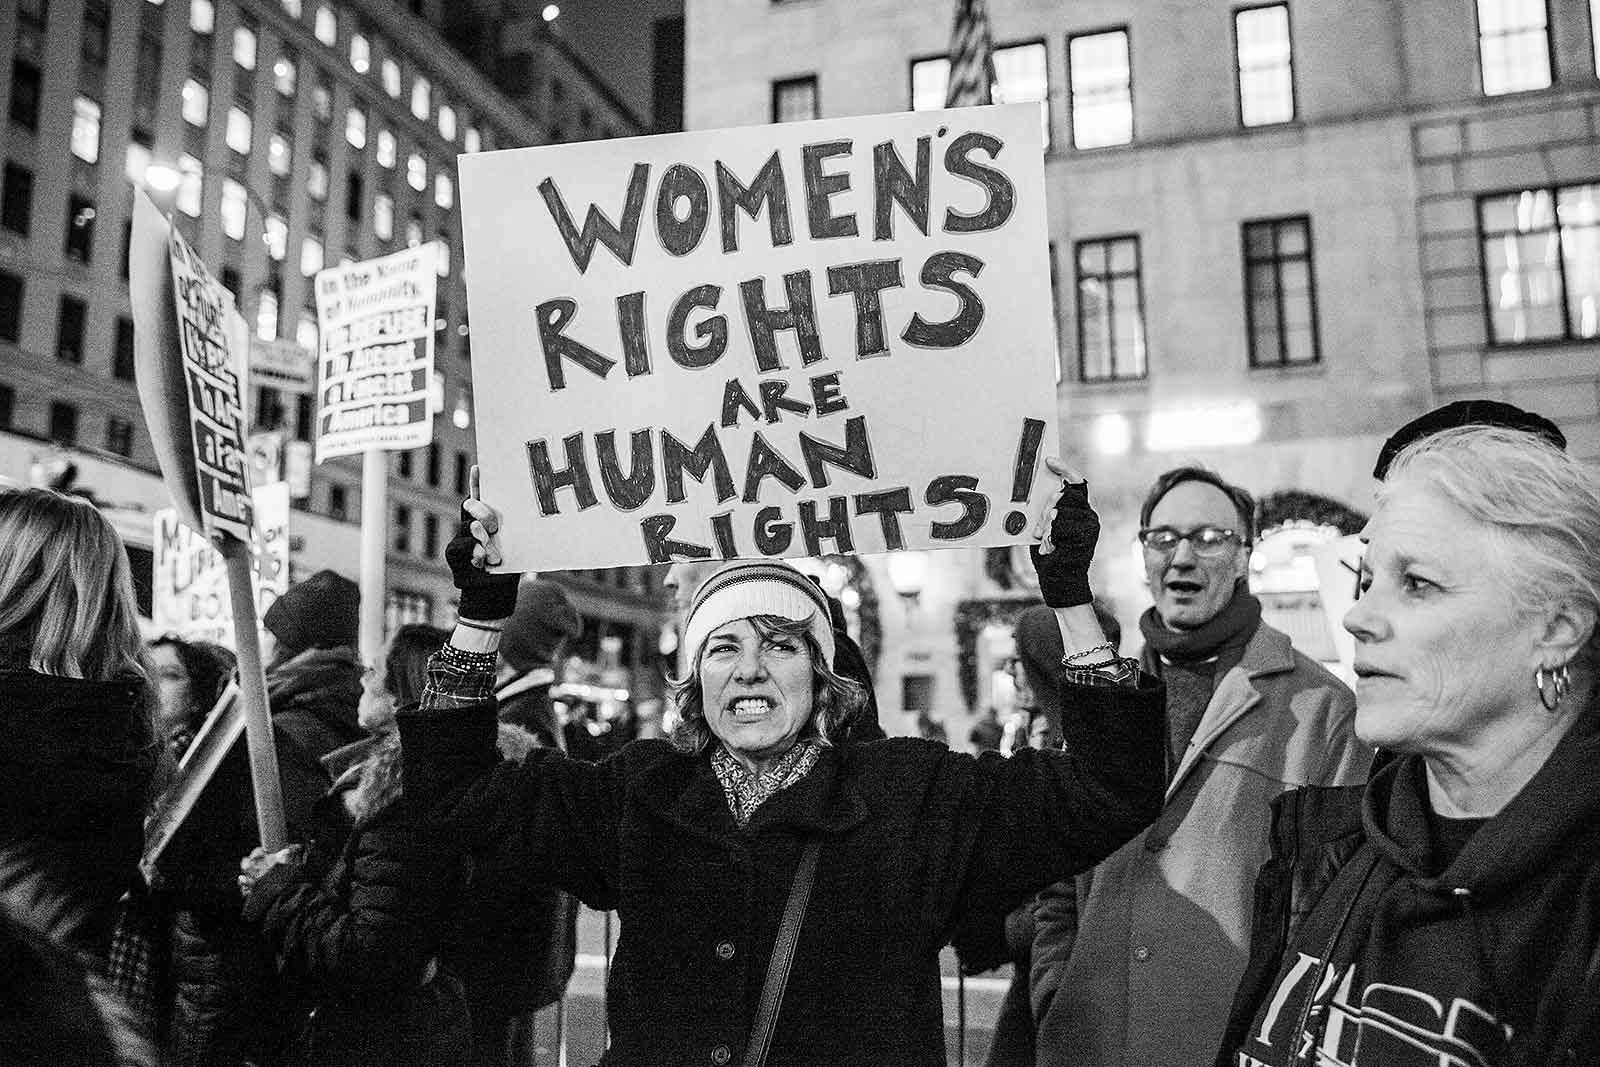 WOMEN'S
RIGHTS
ARE
HUMAN
RIGHTS!
In the Name
of Humanity,
We REFUSE
to Accept
a Fascist
America
In
a Fa